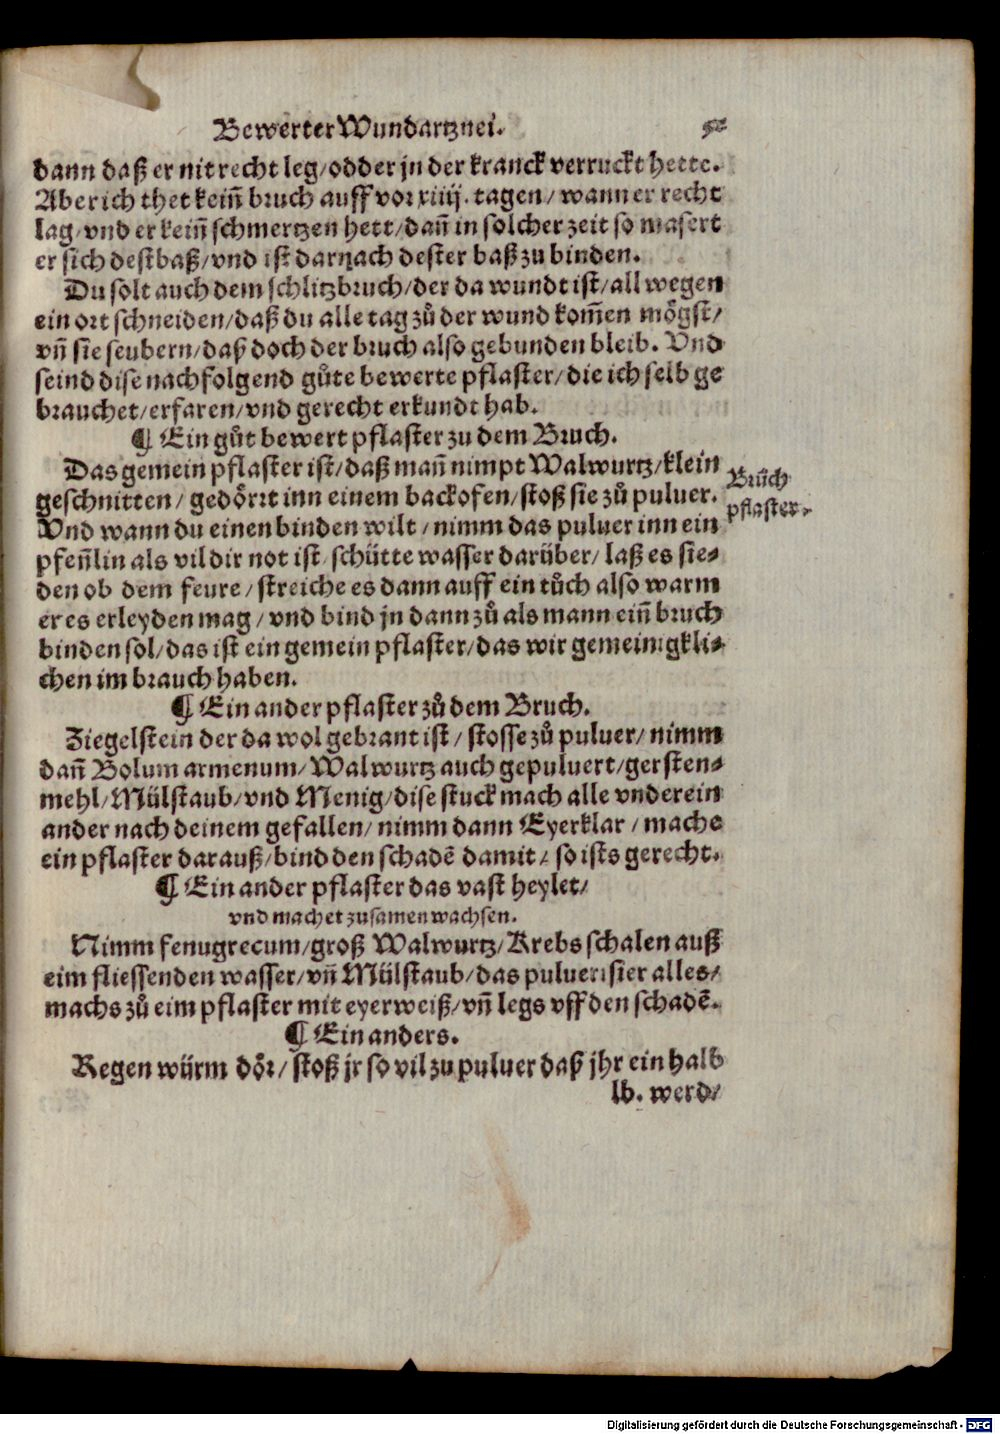 Bewerter Wundartznei.
dann daß er nit recht leg/ odder jn der kranck verruckt hette.
Aber ich thet keiñ bruch auff vor xiiij. tagen/ wann er recht
lag/ vnd er keiñ schmertzen hett/ dañ in solcher zeit so masert
er sich destbaß/ vnd ist darnach dester baß zu binden.
Du solt auch dem schlitzbruch/ der da wundt ist/ all wegen
ein ort schneiden/ daß du alle tag zů der wund kom̃en mögst/
vñ sie seubern/ daß doch der bruch also gebunden bleib. Vnd
seind dise nachfolgend gůte bewerte pflaster/ die ich selb ge
brauchet/ erfaren/ vnd gerecht erkundt hab.
¶ Ein gůt bewert pflaster zu dem Bruch.
Das gemein pflaster ist/ daß mañ nimpt Walwurtz/ klein
geschnitten/ gedörrt inn einem backofen/ stoß sie zů puluer.
Vnd wann du einen binden wilt/ nimm das puluer inn ein
pfeñlin als vil dir not ist/ schütte wasser darüber/ laß es sie-
den ob dem feure/ streiche es dann auff ein tůch also warm
er es erleyden mag/ vnd bind jn dann zů als mann eiñ bruch
binden sol/ das ist ein gemein pflaster/ das wir gemeinigkli-
chen im brauch haben.
Bruch
pflaster.
¶ Ein ander pflaster zů dem Bruch.
Ziegelstein der da wol gebrant ist/ stosse zů puluer/ nimm
dañ Bolum armenum/ Walwurtz auch gepuluert/ gersten-
mehl/ Mülstaub/ vnd Menig/ dise stuck mach alle vnderein
ander nach deinem gefallen/ nimm dann Eyerklar/ mache
ein pflaster darauß/ bind den schadē damit/ so ists gerecht.
¶ Ein ander pflaster das vast heylet/
vnd machet zusamen wachsen.
Nimm fenugrecum/ groß Walwurtz/ Krebs schalen auß
eim fliessenden wasser/ vñ Mülstaub/ das puluerisier alles/
machs zů eim pflaster mit eyerweiß/ vñ legs vff den schadē.
¶ Ein anders.
Regen würm dör/ stoß jr so vil zu puluer daß jhr ein halb
lb. werd/
Digitalisierung gefördert durch die Deutsche Forschungsgemeinschaft - DFG